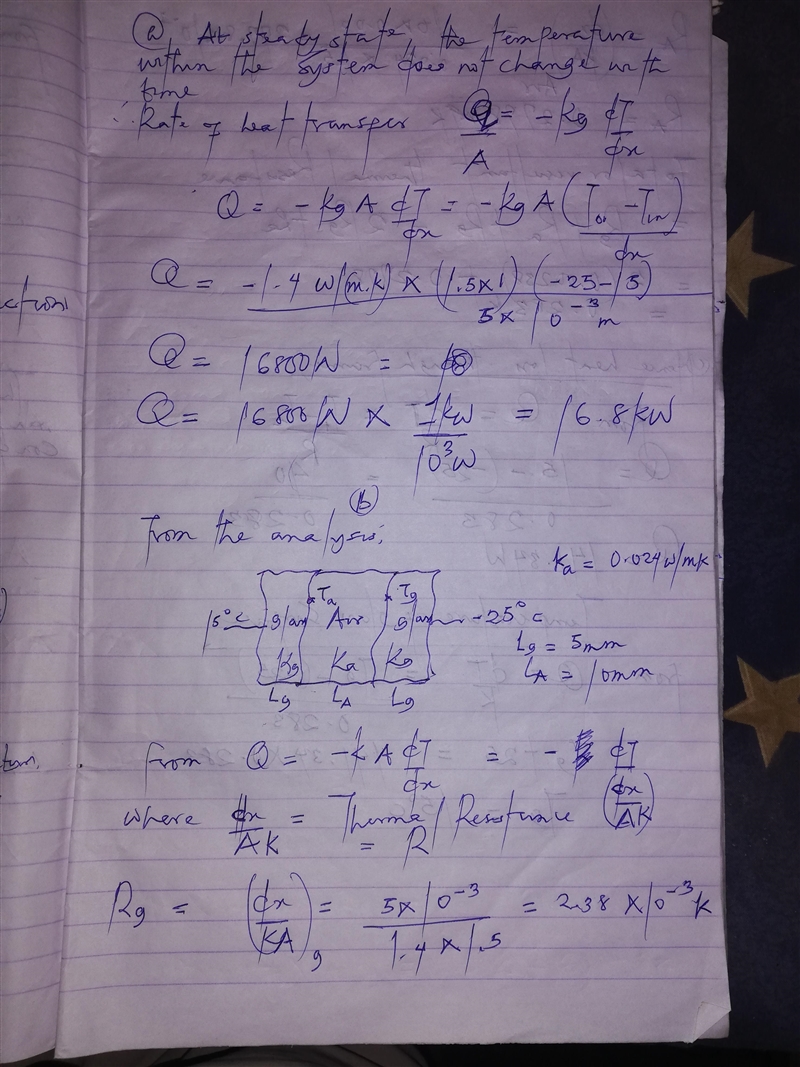 (a) At steady state, the temperature
within the system does not change with
time
∴ Rate of heat transfer Q/A = -kg dT/dx
Q = -kg A dT/dx = -kg A (To - Tin)/dx
Q = -1.4 w/(m.k) x (1.5x1) (-25-15) / 5x10⁻³ m
Q = 16800W =
Q = 16800W x 1kw/10³w = 16.8kW
(b)
From the analysis,
ka = 0.024w/mk
Ta Tg
15°c glass Air glass -25°c
Kg Ka Kg
Lg LA Lg
Lg = 5mm
LA = 10mm
From Q = -k A dT/dx = - dT
(dx/AK)
where dx/AK = Thermal Resistance
= R
Rg = (dx/KA)g = 5x10⁻³ / 1.4 x 1.5 = 2.38 x10⁻³ k
ction